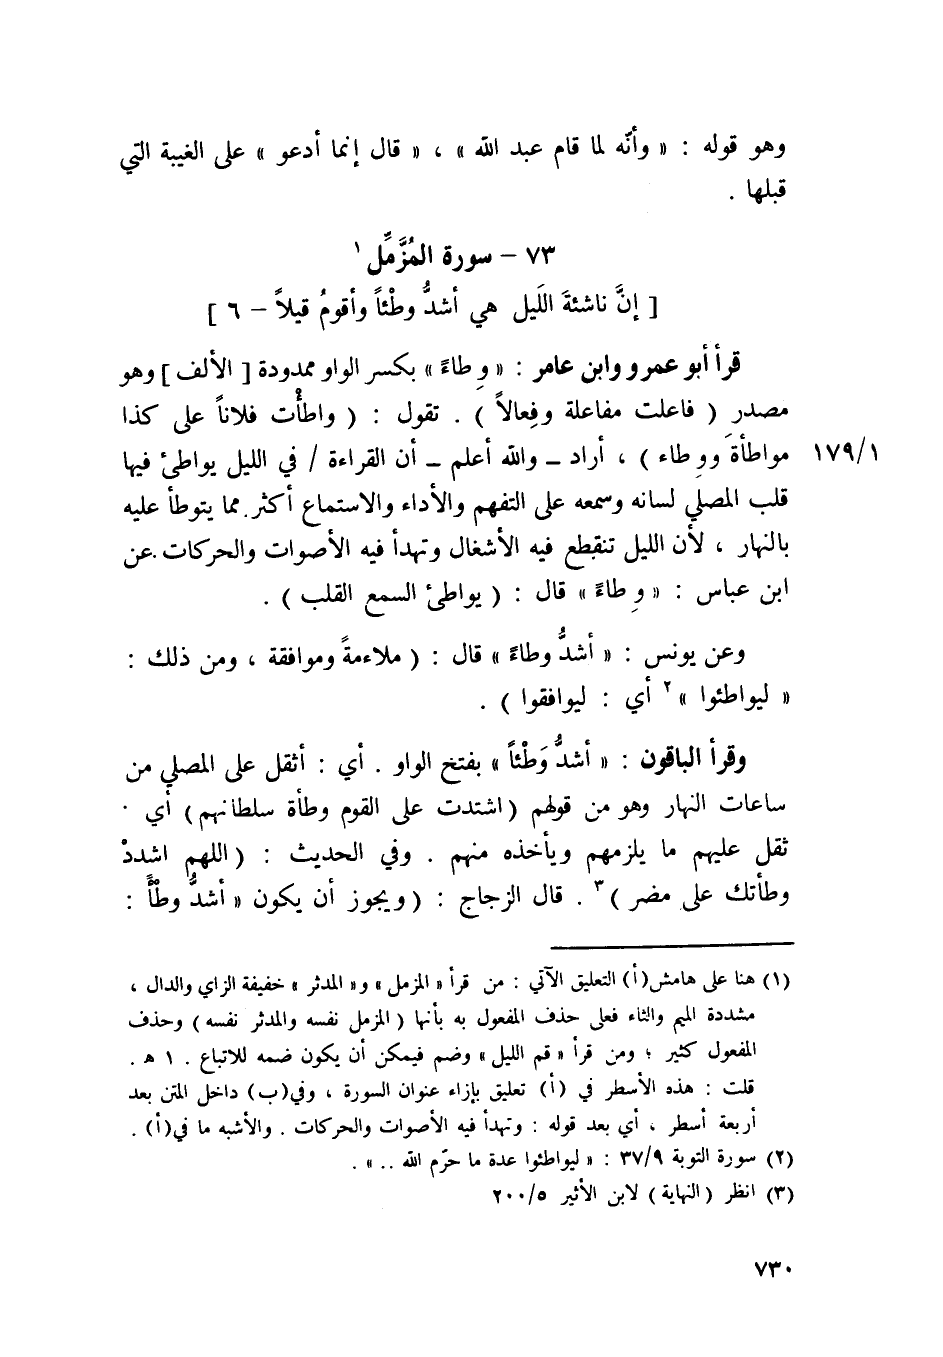 وهو قوله : « وأنّه لما قام عبد الله » ، « قال إنما أدعو » على الغيبة التي
قبلها .
٧٣ – سورة المُزَّمِّل ١
[ إنَّ ناشئةَ اللَيل هي أشدُّ وطْئاً وأقومُ قيلاً – ٦ ]
قرأ أبو عمرو وابن عامر : « وِطاءً » بكسر الواو ممدودة [ الألف ] وهو
مصدر ( فاعلت مفاعلة وفِعالاً ) . تقول : ( واطأْت فلاناً على كذا
مواطأةَ ووِطاء ) ، أراد – والله أعلم – أن القراءة / في الليل يواطئ فيها ١٧٩/١
قلب المصلي لسانه وسمعه على التفهم والأداء والاستماع أكثر مما يتوطأ عليه
بالنهار ، لأن الليل تنقطع فيه الأشغال وتهدأ فيه الأصوات والحركات . عن
ابن عباس : « وِطاءً » قال : ( يواطئ السمع القلب ) .
وعن يونس : « أشدُّ وطاءً » قال : ( ملاءمةً وموافقة ، ومن ذلك :
« ليواطئوا » ٢ أي : ليوافقوا ) .
وقرأ الباقون : « أشدُّ وَطْئاً » بفتح الواو . أي : أثقل على المصلي من
ساعات النهار وهو من قولهم ( اشتدت على القوم وطأة سلطانهم ) أي .
ثقل عليهم ما يلزمهم ويأخذه منهم . وفي الحديث : ( اللهم اشددْ
وطأتك على مضر ) ٣ . قال الزجاج : ( ويجوز أن يكون « أشدُّ وطْأً :
(١) هنا على هامش (أ) التعليق الآتي : من قرأ « المزمل » و« المدثر » خفيفة الزاي والدال ،
مشددة الميم والثاء فعلى حذف المفعول به بأنها ( المزمل نفسه والمدثر نفسه ) وحذف
المفعول كثير ؛ ومن قرأ « قم الليل » وضم فيمكن أن يكون ضمه للاتباع . ١ هـ .
قلت : هذه الأسطر في (أ) تعليق بإزاء عنوان السورة ، وفي (ب) داخل المتن بعد
أربعة أسطر ، أي بعد قوله : وتهدأ فيه الأصوات والحركات . والأشبه ما في (أ) .
(٢) سورة التوبة ٣٧/٩ : « ليواطئوا عدة ما حرّم الله .. » .
(٣) انظر ( النهاية ) لابن الأثير ٢٠٠/٥
٧٣٠